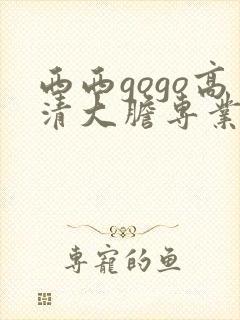 西西gogo高
清大膽專業
專寵的魚